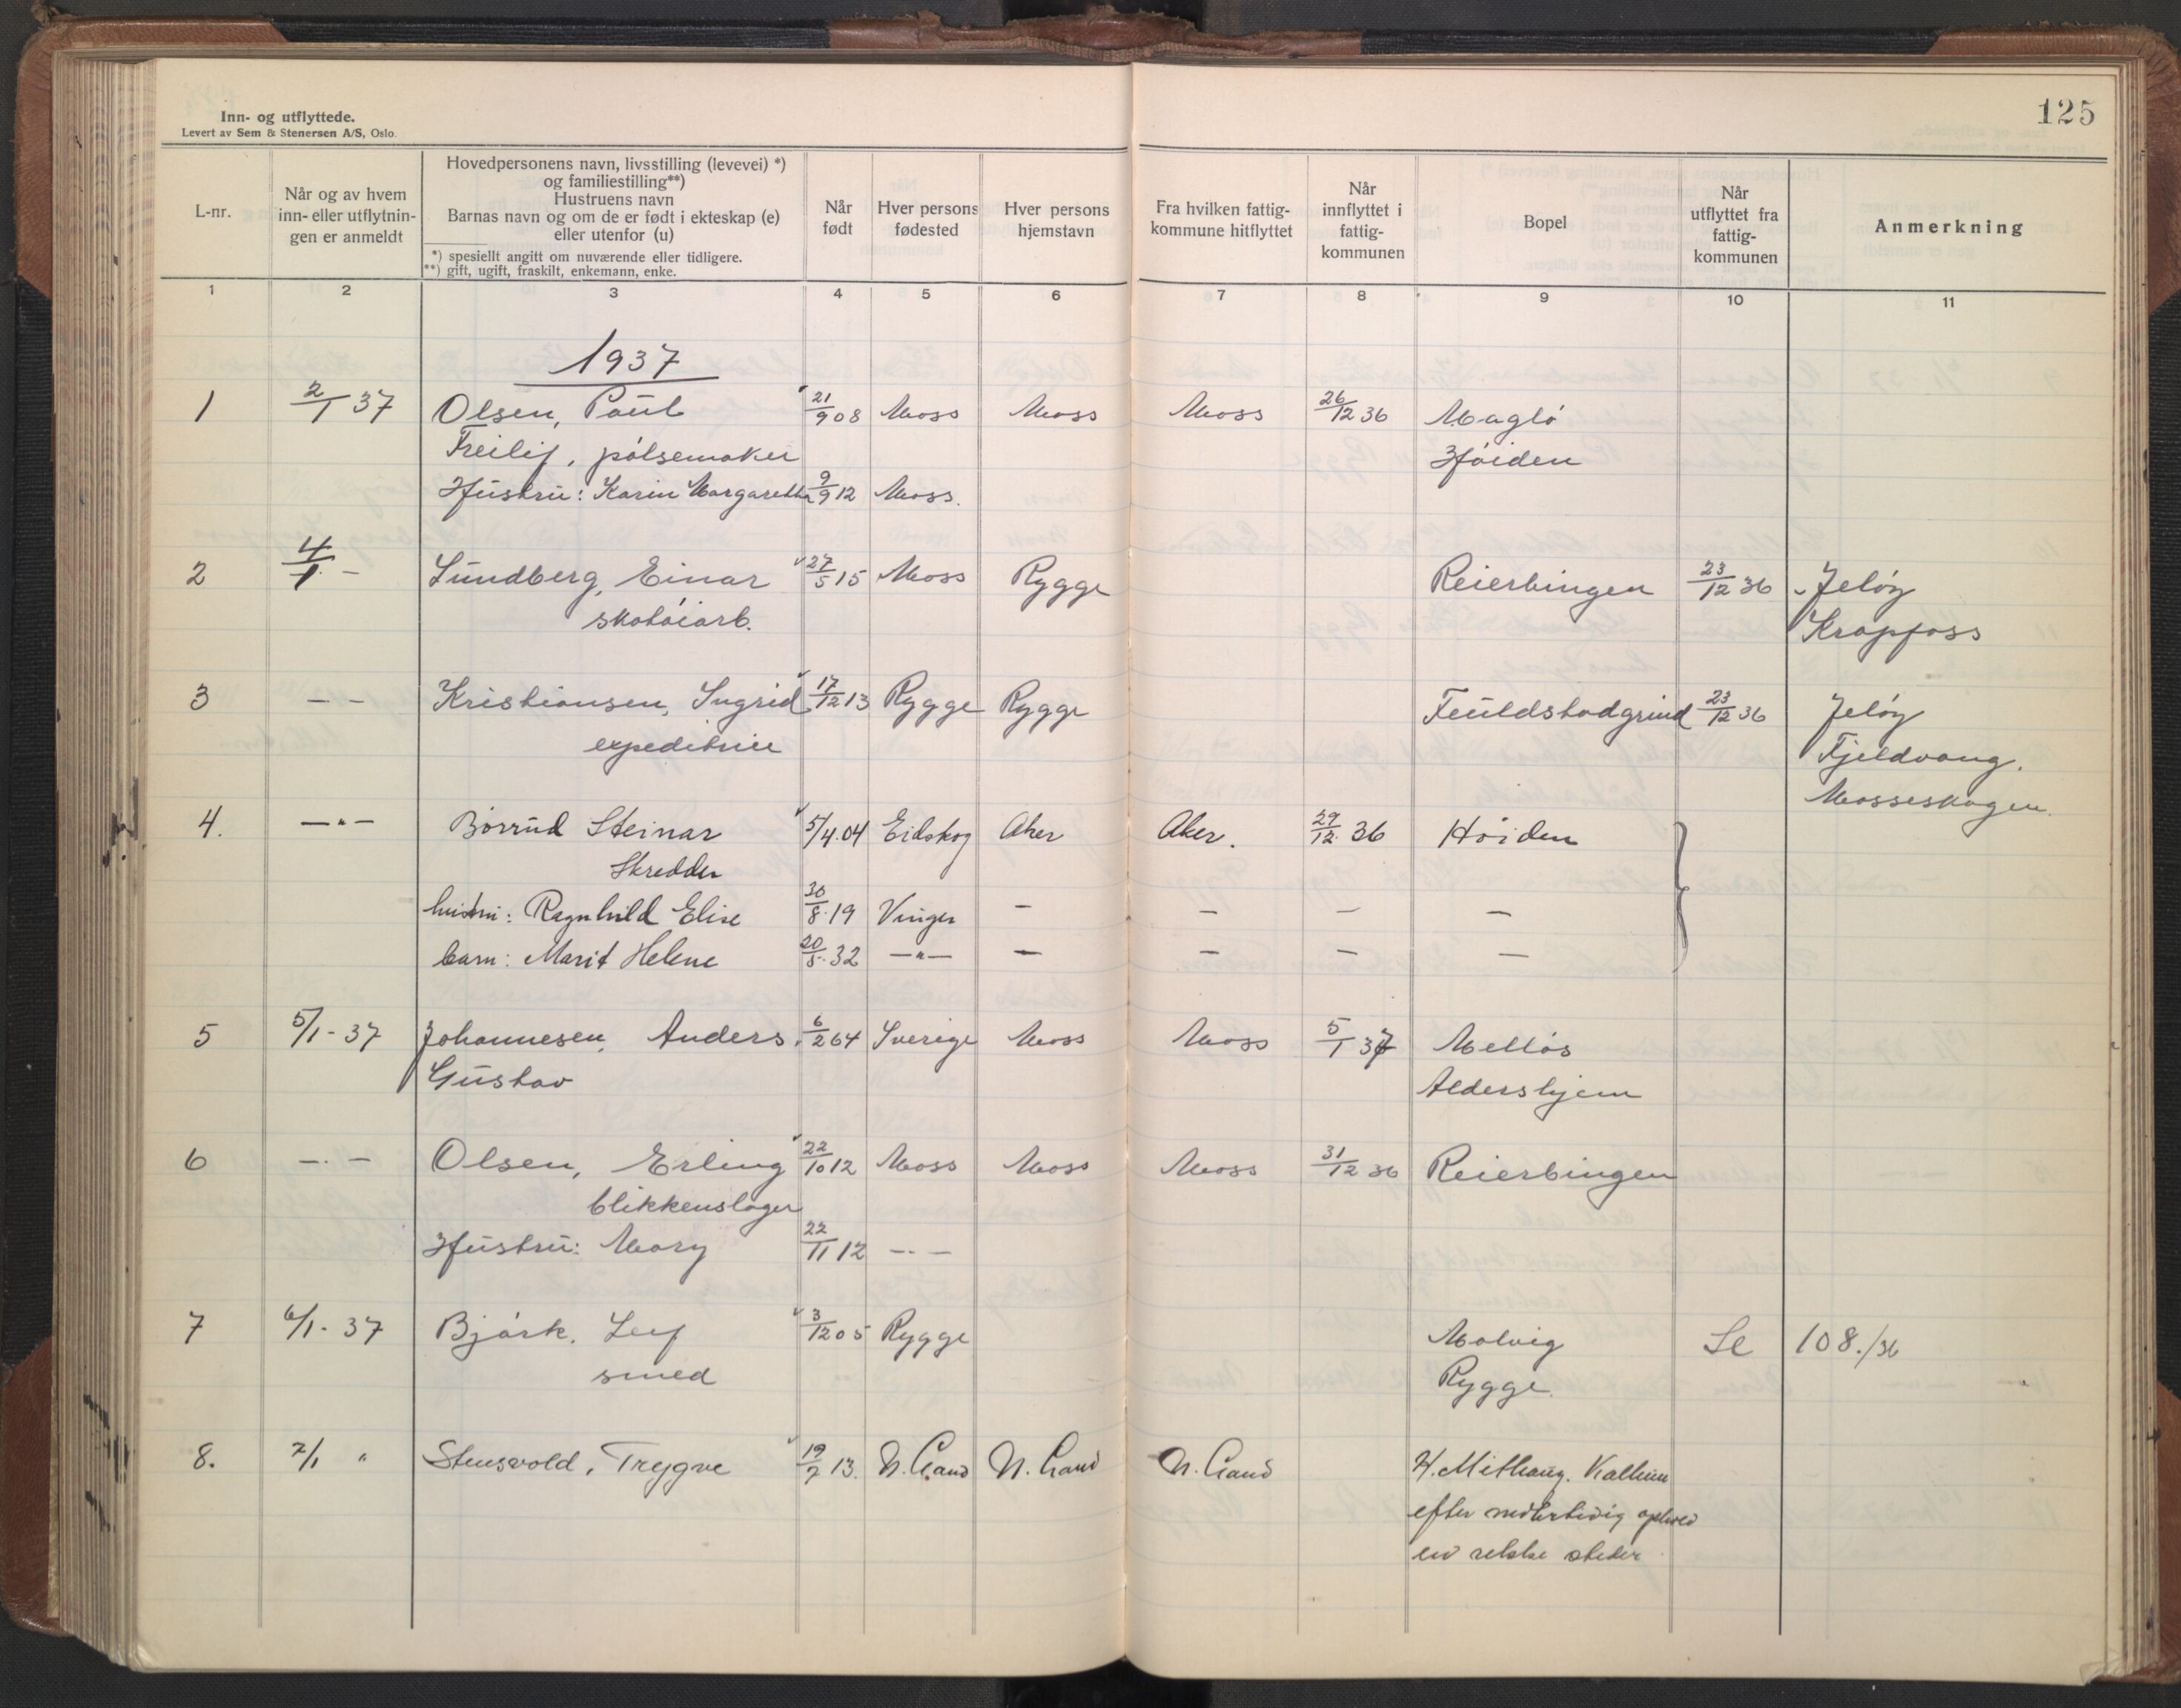 Inn- og utflyttede.
Levert av Sem & Stenersen A/S, Oslo.
125
L-nr.
Når og av hvem
inn- eller utflytnin-
gen er anmeldt
Hovedpersonens navn, livsstilling (levevei) *)
og familiestilling**)
Hustruens navn
Barnas navn og om de er født i ekteskap (e)
eller utenfor (u)
*) spesiellt angitt om nuværende eller tidligere.
**) gift, ugift, fraskilt, enkemann, enke.
Når
født
Hver persons
fødested
Hver persons
hjemstavn
Fra hvilken fattig-
kommune hitflyttet
Når
innflyttet i
fattig-
kommunen
Bopel
Når
utflyttet fra
fattig-
kommunen
Anmerkning
1 2 3 4 5 6 7 8 9 10 11
1937
1 2/1 37 Olsen, Paul 21/9 08 Moss Moss Moss 26/12 36 Magló
Freilif, pólsemaker Hóiden
Hustru: Karin Margaretha 9/9 12 Moss.
2 4/1 - Sundberg, Einar 27/5 15 Moss Rygge Reierbingen 23/12 36 Jelóy
skotóiarb. Krapfoss
3 - - Kristiansen, Ingrid 17/12 13 Rygge Rygge Feuldstadgrind 23/12 36 Jelóy
expeditrice Fjeldvang.
Mosseskogen.
4. -"- Börrud Steinar 5/4.04 Eidskog Aker Aker. 29/12. 36 Höiden
Skredder
hustru: Ragnhild Elise 30/8.19 Vinger - - - -
barn: Marit Helene 20/5.32 -"- - - - -
5 5/1- 37 Johannesen, Anders 6/2 64 Sverige Moss Moss 5/1 37 Mellós
Gustav Aldershjem
6 -.- Olsen, Erling 22/10 12 Moss Moss Moss 31/12 36 Reierbingen
blikkenslager
Hustru: Mary 22/11 12 -.-
7 6/1- 37 Bjórk, Leif 3/12 05 Rygge Molvig Se 108./36
smed Rygge.
8. 7/1 " Stensvold, Trygve 19/7 13. N. Land N. Land N. Land H. Mithaug. Kallum
efter midlertidig ophold
en rekke steder